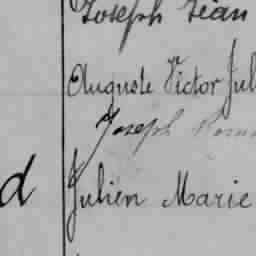 Joseph Jean
Auguste Victor Jul
Joseph
d
Julien Marie